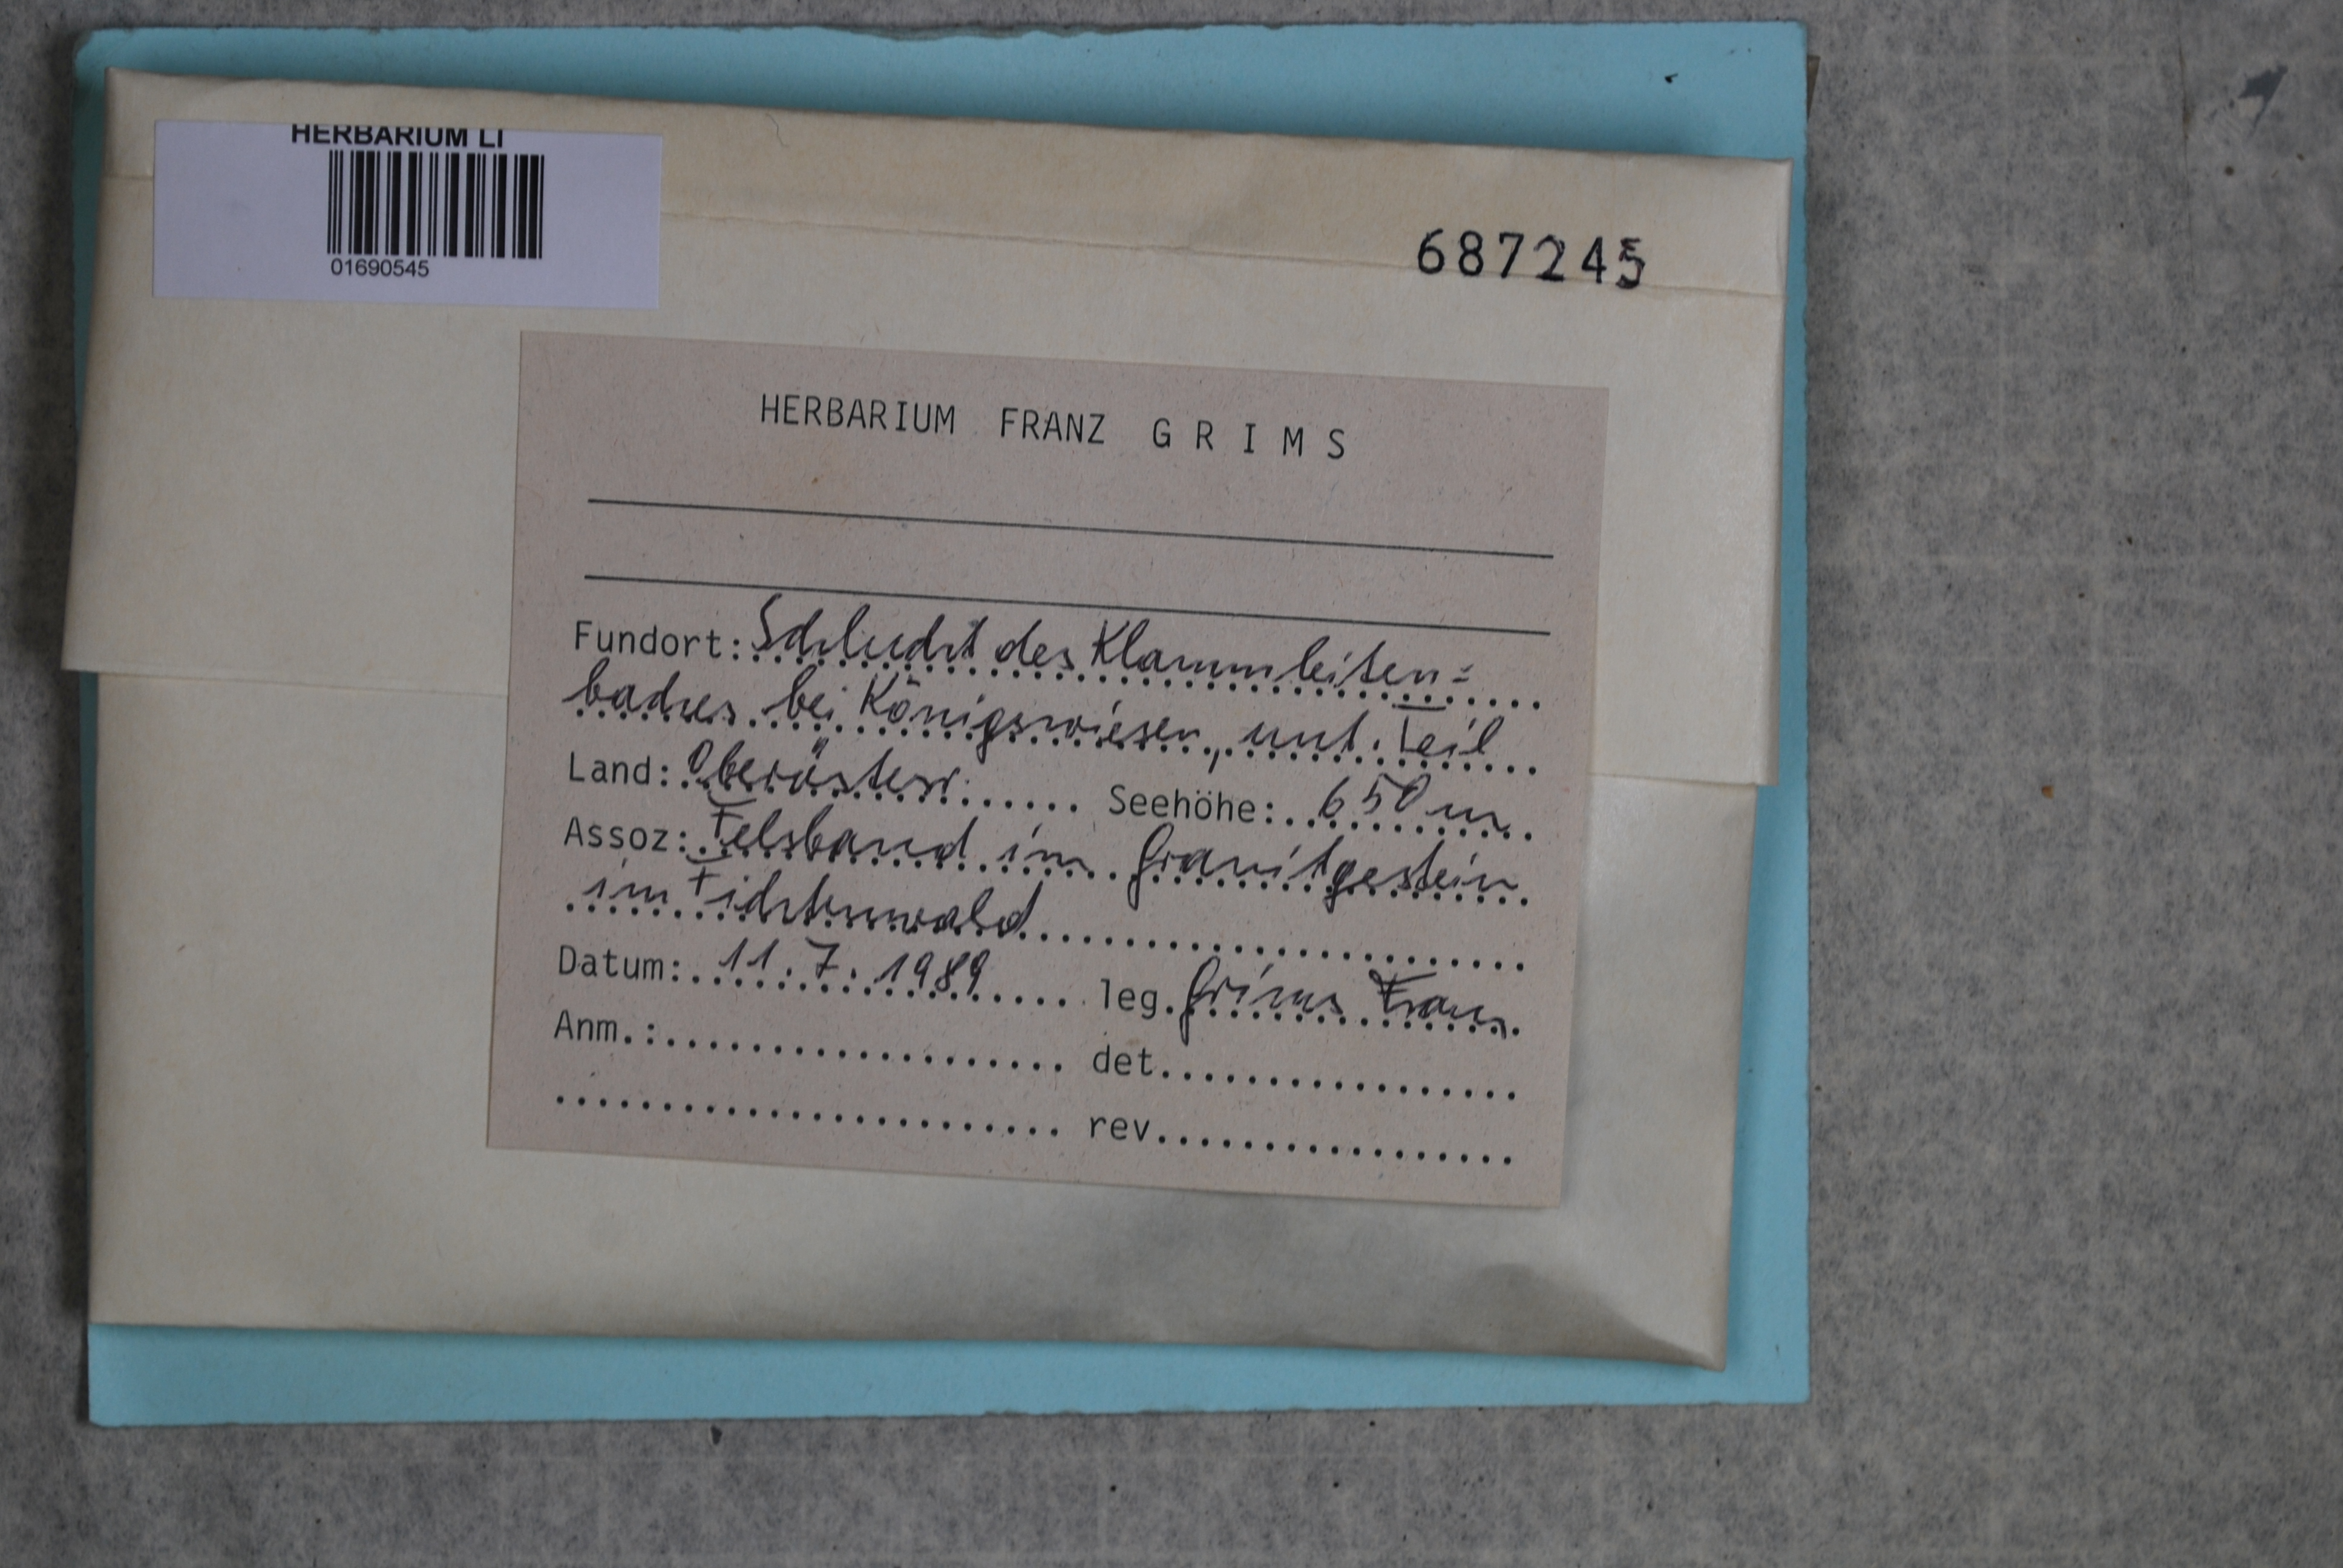 HERBARIUM LI
01690545
687245
HERBARIUM FRANZ GRIMS
Fundort: Schlucht des Klammleiten=
baches bei Königswiesen, unt. Teil
Land: Oberösterr. Seehöhe: 650 m
Assoz: Felsband im Granitgestein
im Fichtenwald
Datum: 11.7.1989 leg. Grims Franz
Anm.: det.
rev.